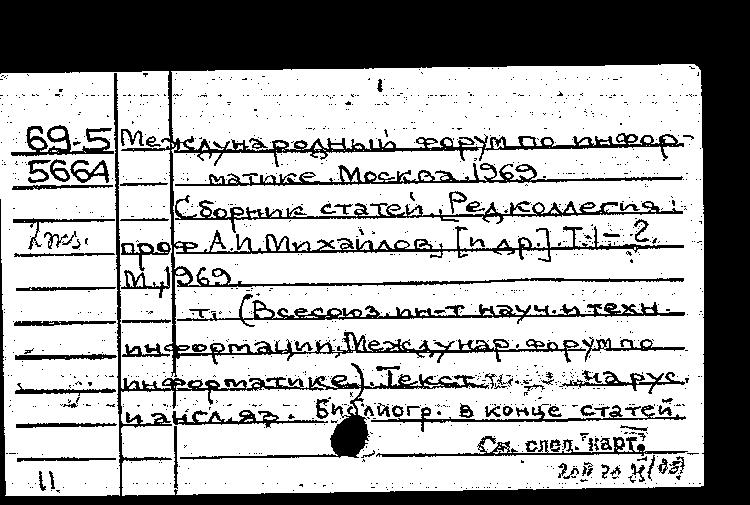 69-5 Международный форум по инфор-
5664 матике. Москва. 1969.
Сборник статей. Ред. коллегия:
2 экз. проф. А.И. Михайлов, [и др.] Т. 1-2.
М., 1969.
Т. (Всесоюз. ин-т науч. и техн.
информации, Междунар. форум по
информатике). Текст на рус.
и англ. яз. Библиогр. в конце статей.
См. след. карт.
11